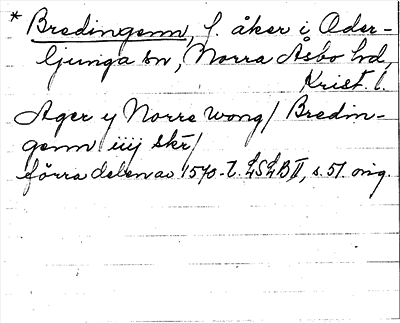 * Bredingenn, f. åker i Oder-
ljunga sn, Norra Åsbo hd,
Krist. l.
Ager y Norre wong/ Bredin-
genn iiij skr/
förra delen av 1570-t. LSLB II, s. 51 orig.